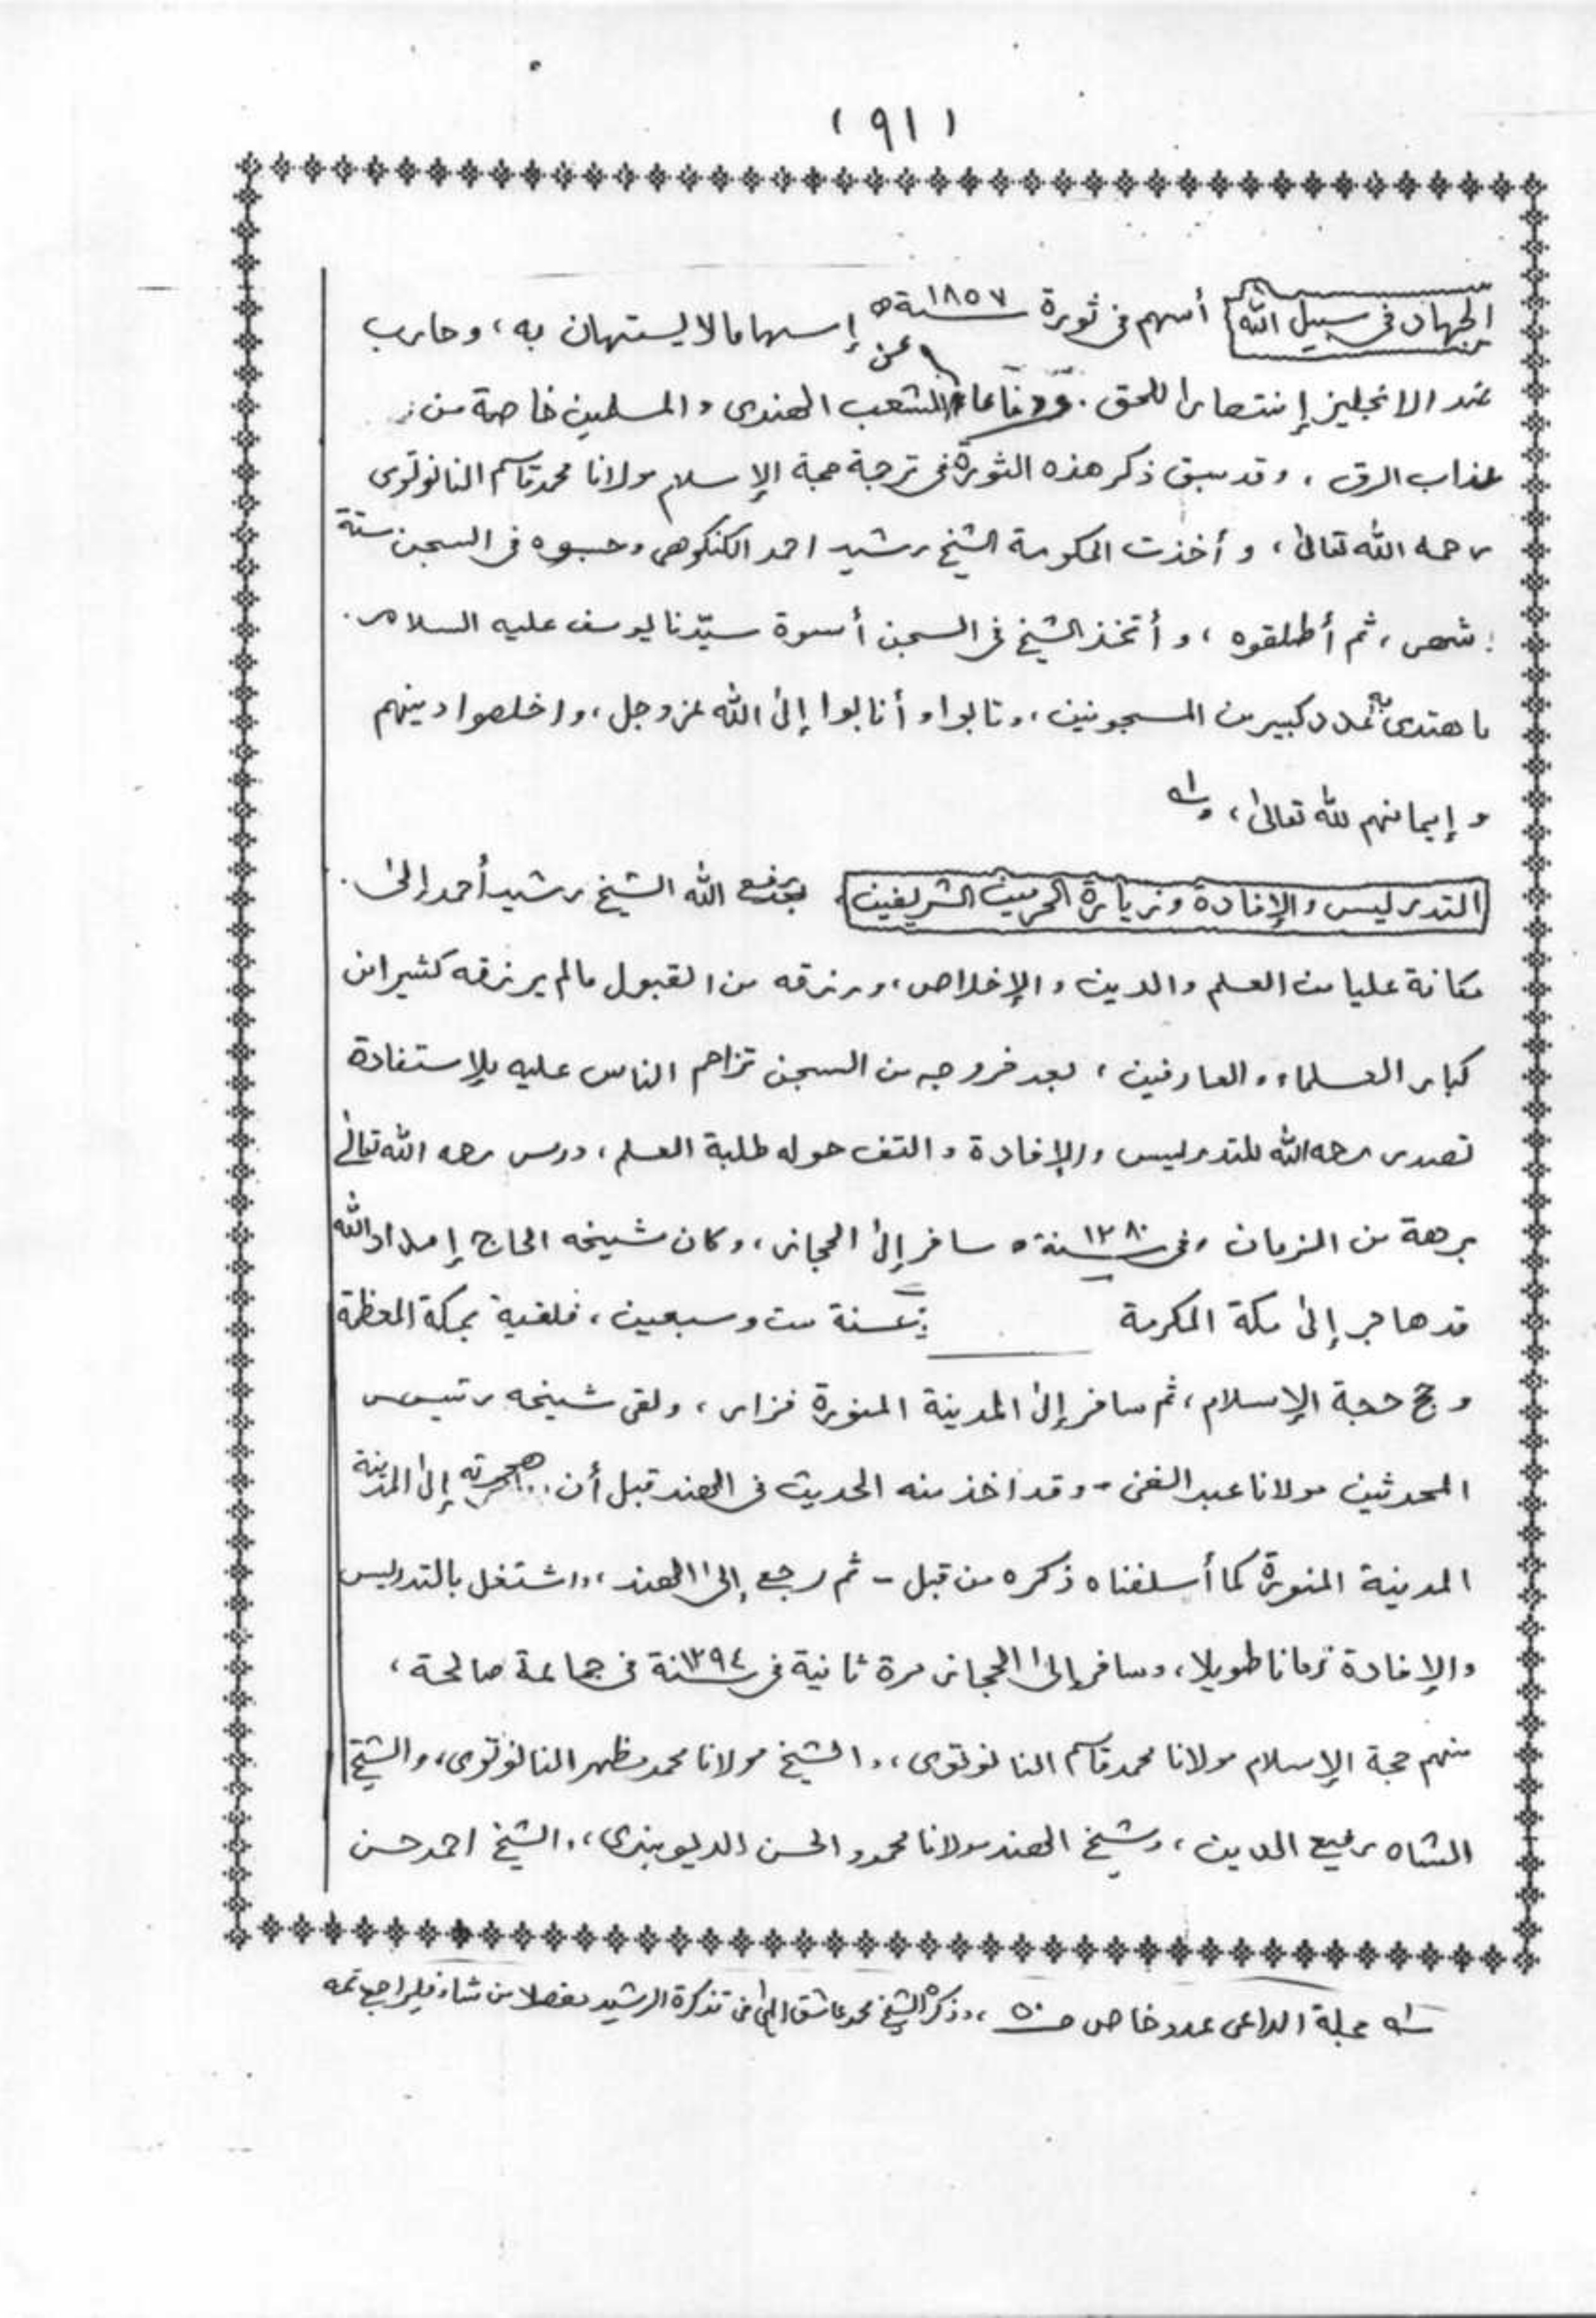 (٩١)
الجهاد في سبيل الله أسهم في ثورة سنة ١٨٥٧ه إسهاما لا يستهان به، وحارب
ضد الانجليز إنتصارا للحق. ودفاعا عن الشعب الهندى والمسلمين خاصة من
عذاب الرق، وقد سبق ذكر هذه الثورة في ترجمة حجة الإسلام مولانا محمد قاسم النانوتوى
رحمه الله تعالىٰ، و أخذت الحكومة الشيخ رشيد احمد الكنكوهى وحبسوه فى السجن ستة
شهر، ثم أطلقوه، و أتخذ الشيخ فى السجن أسوة سيّدنا يوسف عليه السلام.
فاهتدى به عدد كبير من المسجونين، وتابوا و أنابوا إلىٰ الله عز وجل، واخلصوا دينهم
و إيمانهم لله تعالىٰ، ١ه
التدريس والإفادة وزيارة الحرمين الشريفين، رفع الله الشيخ رشيد أحمد إلىٰ
مكانة عليا من العلم والدين والإخلاص، ورزقه من القبول مالم يرزقه كثيرا من
كبار العلماء والعارفين، بعد خروجه من السجن تزاحم الناس عليه للإستفادة
تصدى رحمه الله للتدريس والإفادة و التف حوله طلبة العلم، ودرس رحمه الله تعالىٰ
برهة من الزمان وفى سنة ١٢٨٠ه سافر إلىٰ الحجاز، وكان شيخه الحاج إمداد الله
قد هاجر إلىٰ مكة المكرمة سنة ست وسبعين، فلقية بمكة المعظمة
و حج حجة الإسلام، ثم سافر إلىٰ المدينة المنورة فزار، ولقى شيخه رئيس
المحدثين مولانا عبد الغنى - وقد اخذ منه الحديث فى الهند قبل أن هجرته إلىٰ المدينة
المدينة المنورة كما أسلفناه ذكره من قبل - ثم رجع إلىٰ الهند، واشتغل بالتدريس
والإفادة زمانا طويلا، وسافر إلىٰ الحجاز مرة ثانية فى سنة ١٢٩٤ فى جماعة صالحة،
منهم حجة الإسلام مولانا محمد قاسم النانوتوى، والشيخ مولانا محمد مظهر النانوتوى، والشيخ
الشاه رفيع الدين، وشيخ الهند مولانا محمود الحسن الديوبندى، والشيخ احمد حسن
١ه مجلة الداعى عدد خاص صـ ٥٠، وذكره الشيخ محمد عاشق إلٰهى فى تذكرة الرشيد مفصلا من شاء فليراجع ثمه